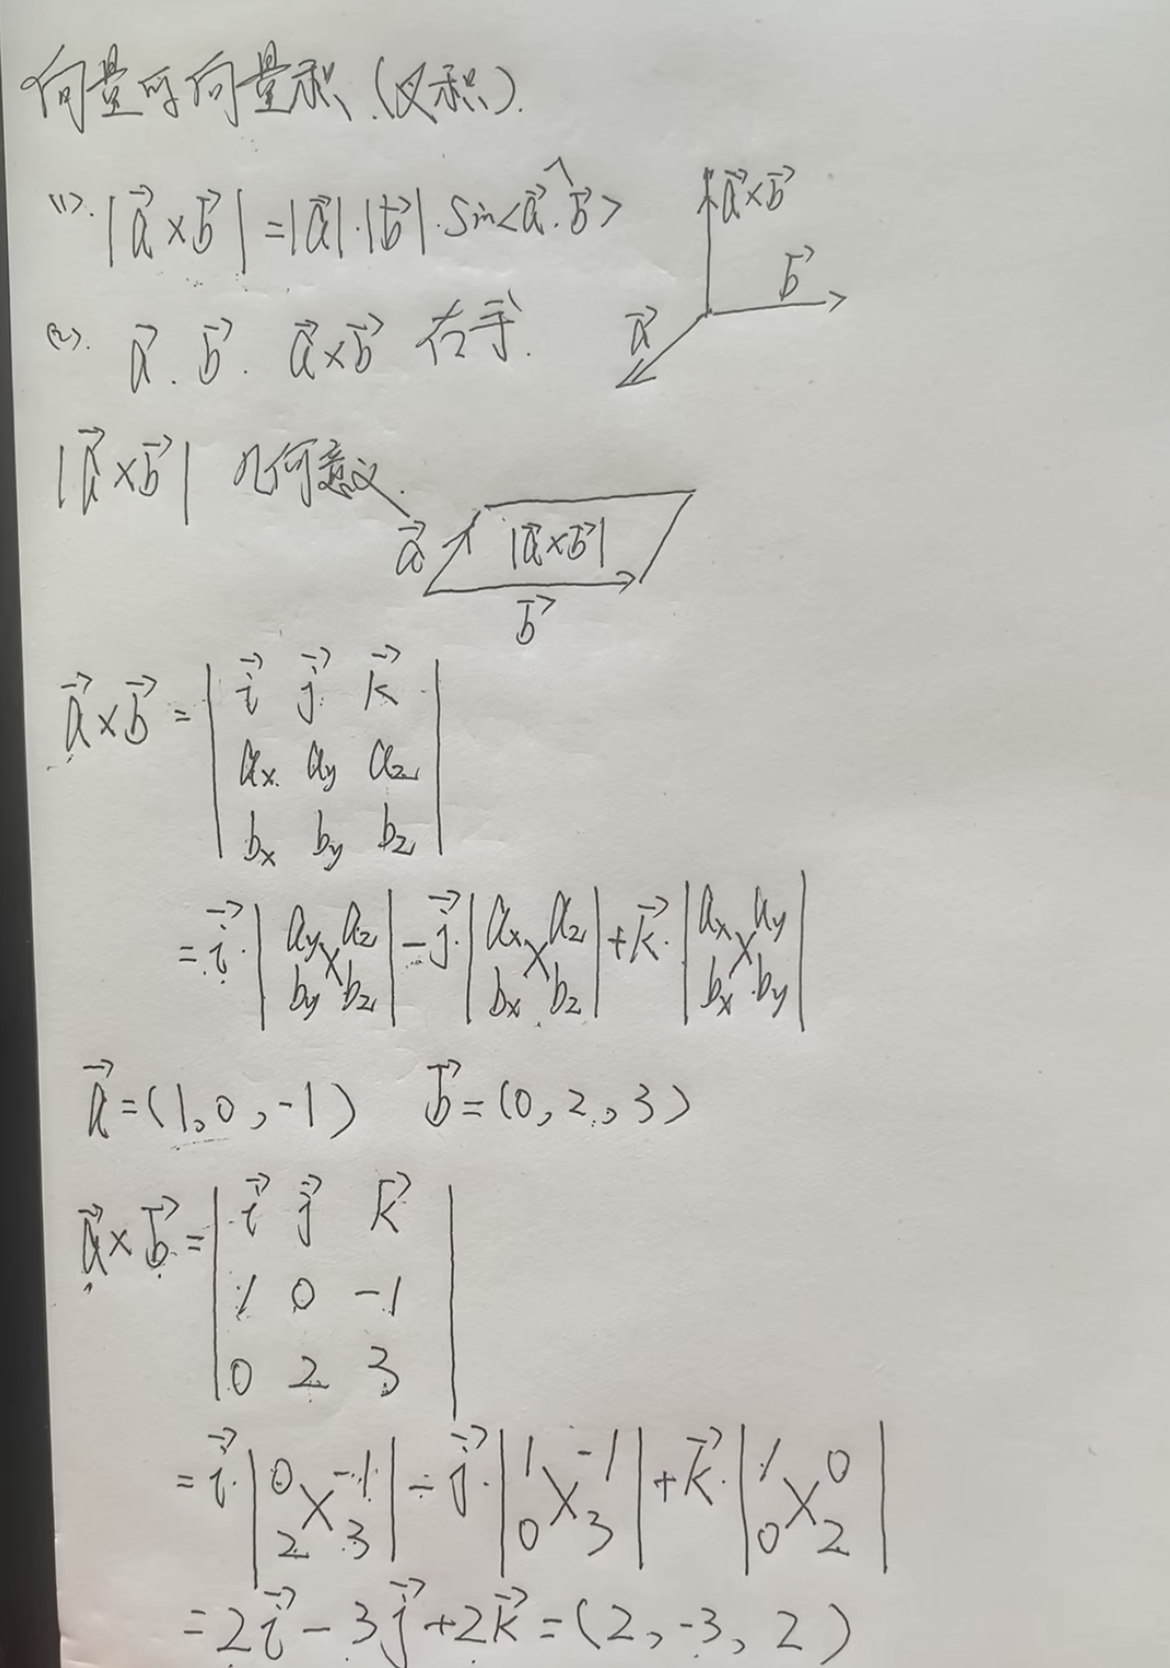 向量的向量积.(叉积).
(1). |a⃗×b⃗|=|a⃗|·|b⃗|·Sin<a⃗.^b⃗>
a⃗×b⃗
b⃗
a⃗
(2). a⃗. b⃗. a⃗×b⃗ 右手.
|a⃗×b⃗| 几何意义.
a⃗ |a⃗×b⃗|
b⃗
a⃗×b⃗ = | i⃗ j⃗ k⃗ |
| ax ay az |
| bx by bz |
= i⃗· | ay az | - j⃗· | ax az | + k⃗· | ax ay |
| by bz | | bx bz | | bx by |
a⃗=(1,0,-1) b⃗=(0,2,3)
a⃗×b⃗ = | i⃗ j⃗ k⃗ |
| 1 0 -1 |
| 0 2 3 |
= i⃗· | 0 -1 | - j⃗· | 1 -1 | + k⃗· | 1 0 |
| 2 3 | | 0 3 | | 0 2 |
= 2i⃗ - 3j⃗ + 2k⃗ = (2,-3,2)